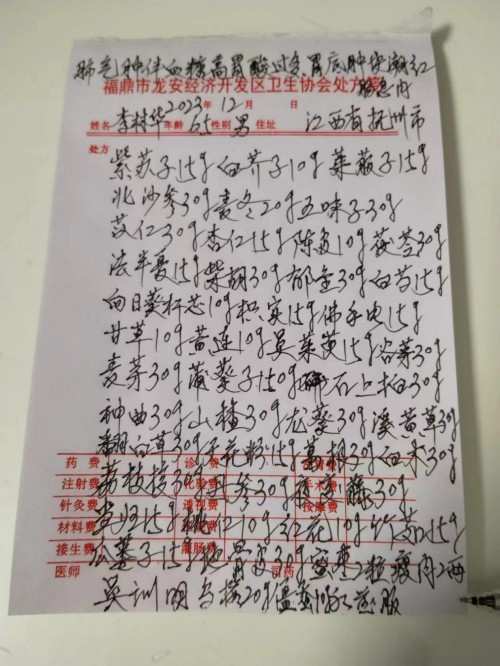 肺气肿伴血糖高胃酸过多胃底肿
福鼎市龙安经济开发区卫生协会处方笺
2023年12月 日
姓名 李林华 年龄 65 性别 男 住址 江西省抚州市
处方
紫苏子15g白芥子10g莱菔子15g
北沙参30g麦冬20g五味子30g
苡仁30g杏仁15g陈皮10g茯苓30g
法半夏15g柴胡30g郁金30g白芍15g
向日葵杆芯10g枳实15g佛手虫15g
甘草10g黄连10g吴茱萸15g谷芽30g
麦芽30g蒲葵子150g石上柏30g
神曲30g山楂30g龙葵30g溪黄草30g
翻白草30g天花粉15g葛根30g白术30g
药费 诊费
荔枝核30g 参30g 藤30g
注射费 化验费 手术费
针灸费 透视费 按摩费
当归15g桃仁10g红花10g竹茹15g
材料费
瓜蒌子15g地骨皮30g 瘦肉2两
接生费
医师 司药